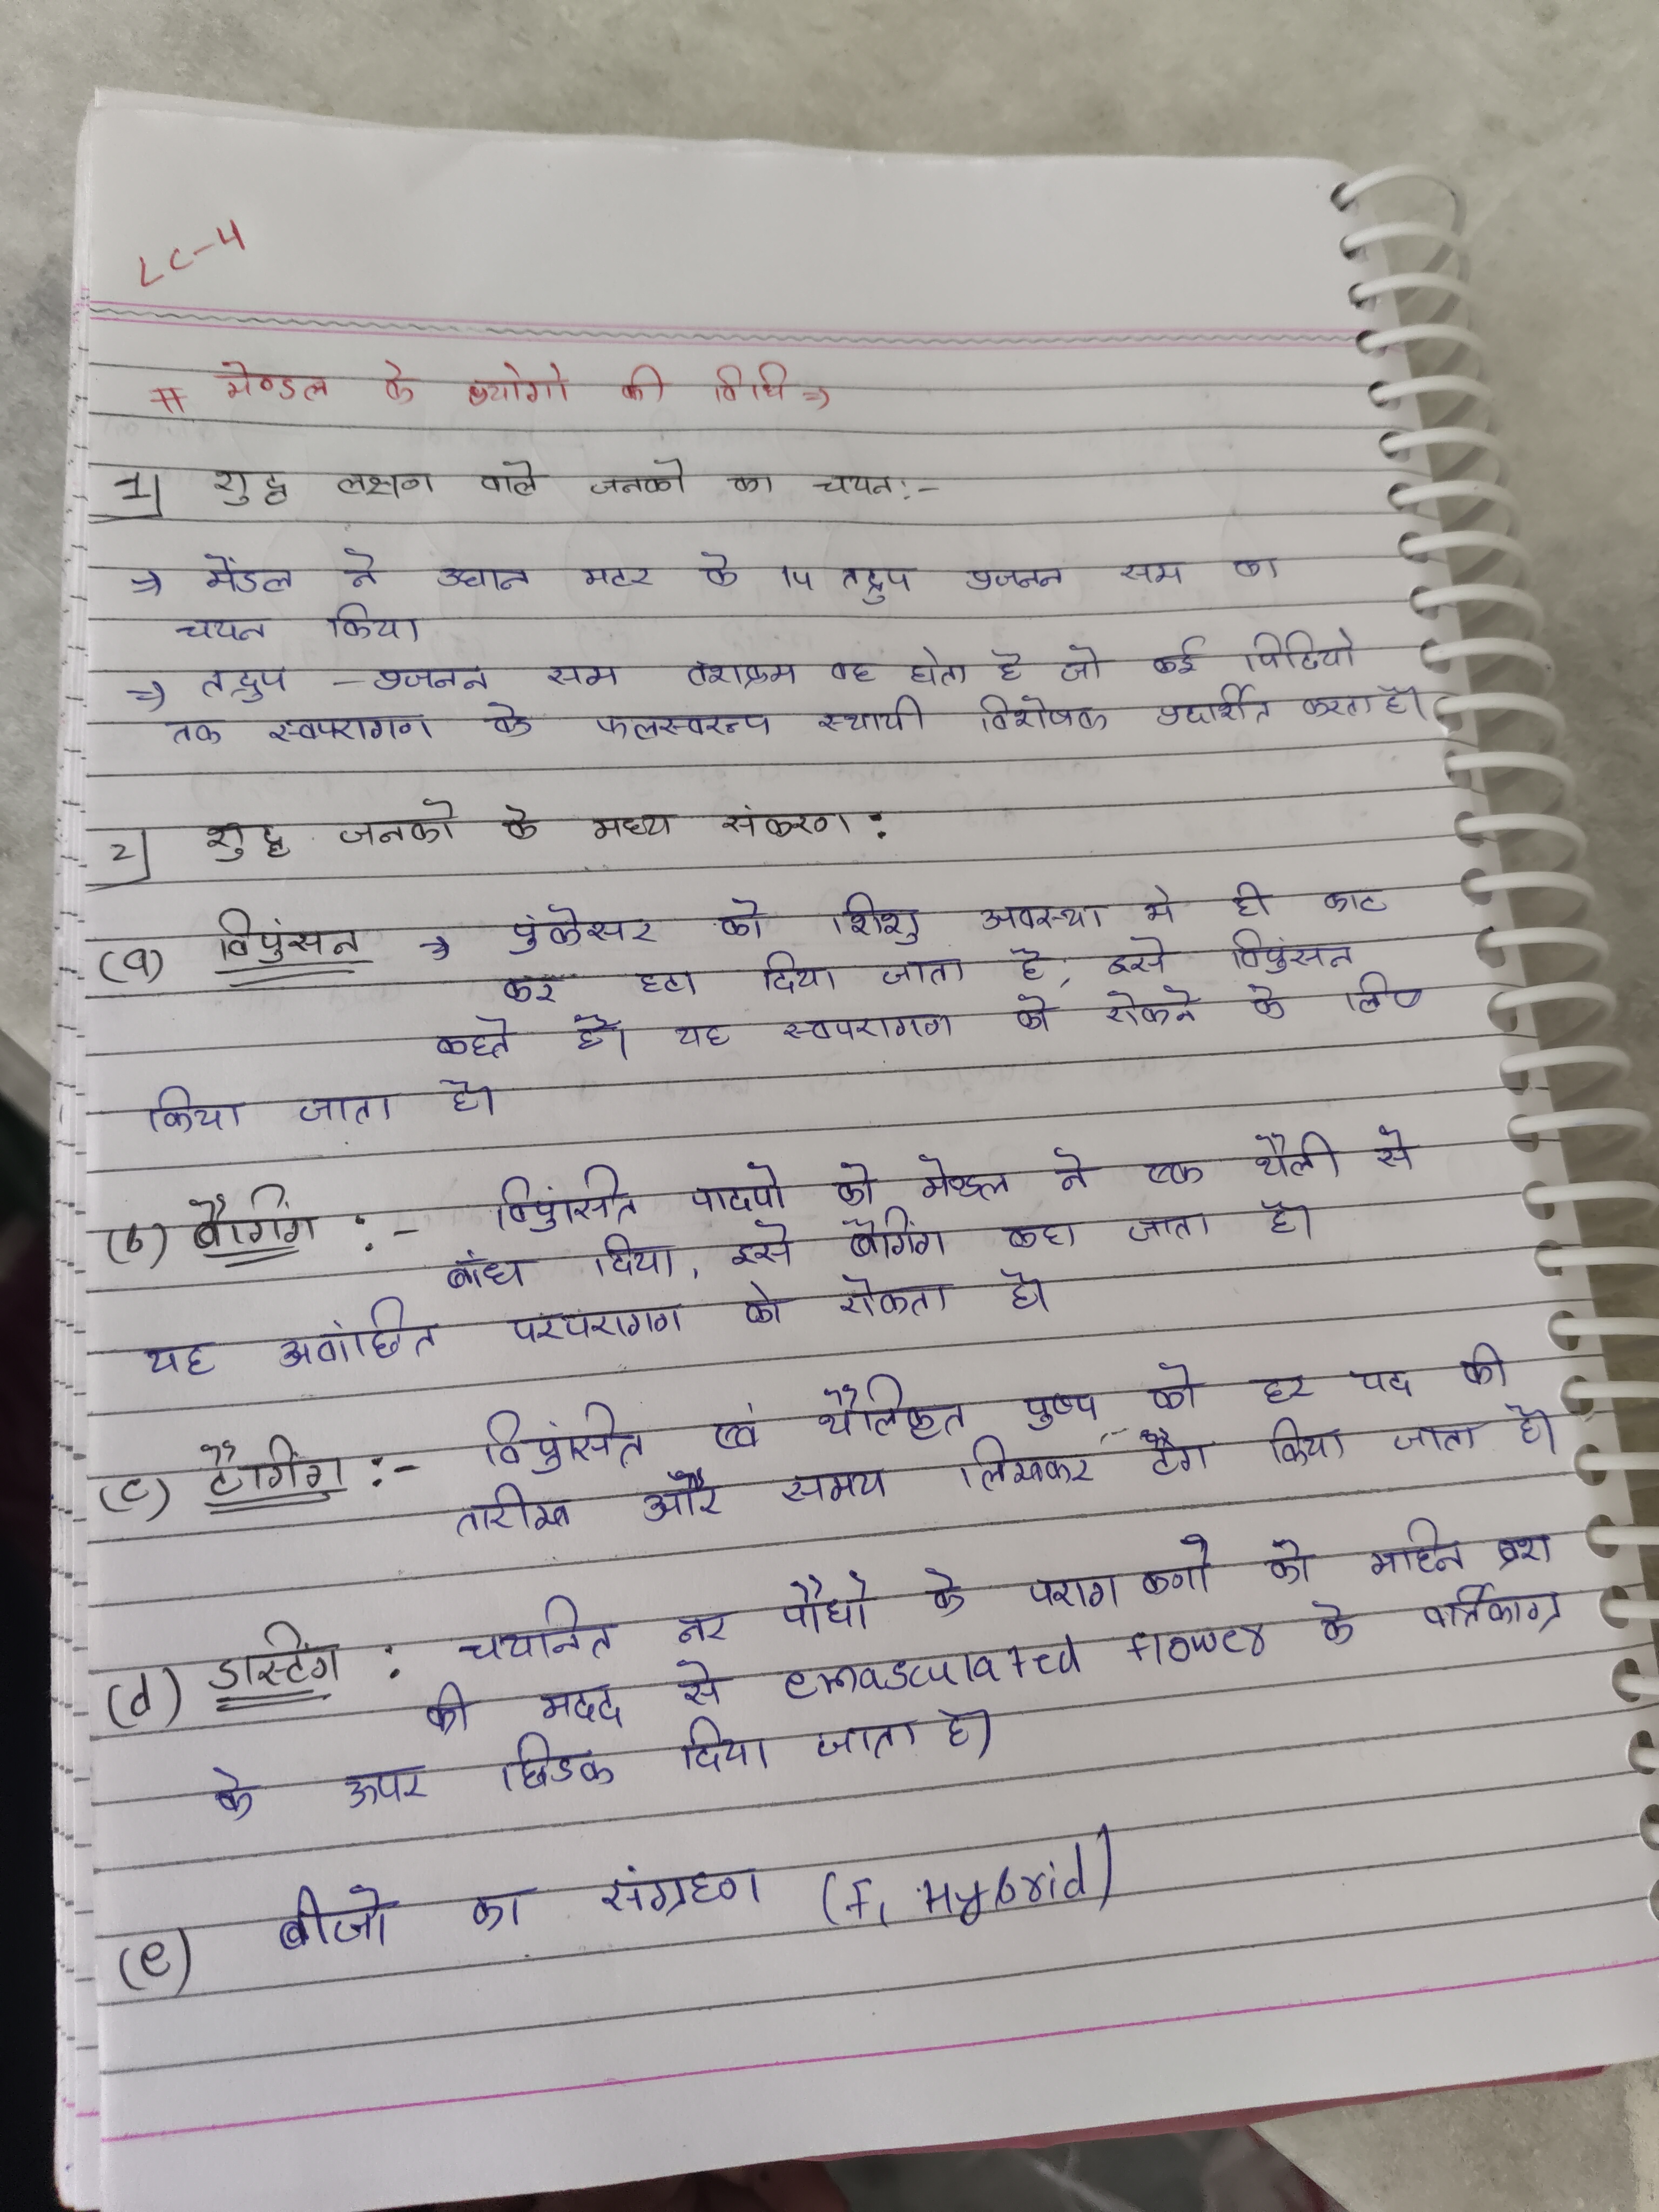 LC-4
# मेण्डल के प्रयोगो की विधि ⇒
1] शुद्ध लक्षण वाले जनको का चयन:-
→ मेंडल ने उद्यान मटर के 14 तद्रुप प्रजनन सम का
चयन किया
⇒ तद्रुप - प्रजनन सम वंशाक्रम वह होता है जो कई पिढियो
तक स्वपरागण के फलस्वरूप स्थायी विशेषक प्रदार्शित करता है।
2] शुद्ध जनको के मध्य संकरण :
(a) विपुंसन → पुंकेसर को शिशु अवस्था मे ही काट
कर हटा दिया जाता है, इसे विपुंसन
कहते है। यह स्वपरागण को रोकने के लिए
किया जाता है।
(b) बैगिंग :- विपुंसित पादपो को मेण्डल ने एक थैली से
बांध दिया, इसे बैगिंग कहा जाता है।
यह अवांछित परपरागण को रोकता है।
(c) टैगिंग :- विपुंसित एवं थैलिकृत पुष्प को हर पद की
तारीख और समय लिखकर टैग किया जाता है।
(d) डास्टिंग : चयनित नर पौधो के पराग कणो को माहिन ब्रश
की मदद से emasculated flower के वर्तिकाग्र
के ऊपर छिडक दिया जाता है।
(e) बीजो का संग्रहण (F₁ Hybrid)